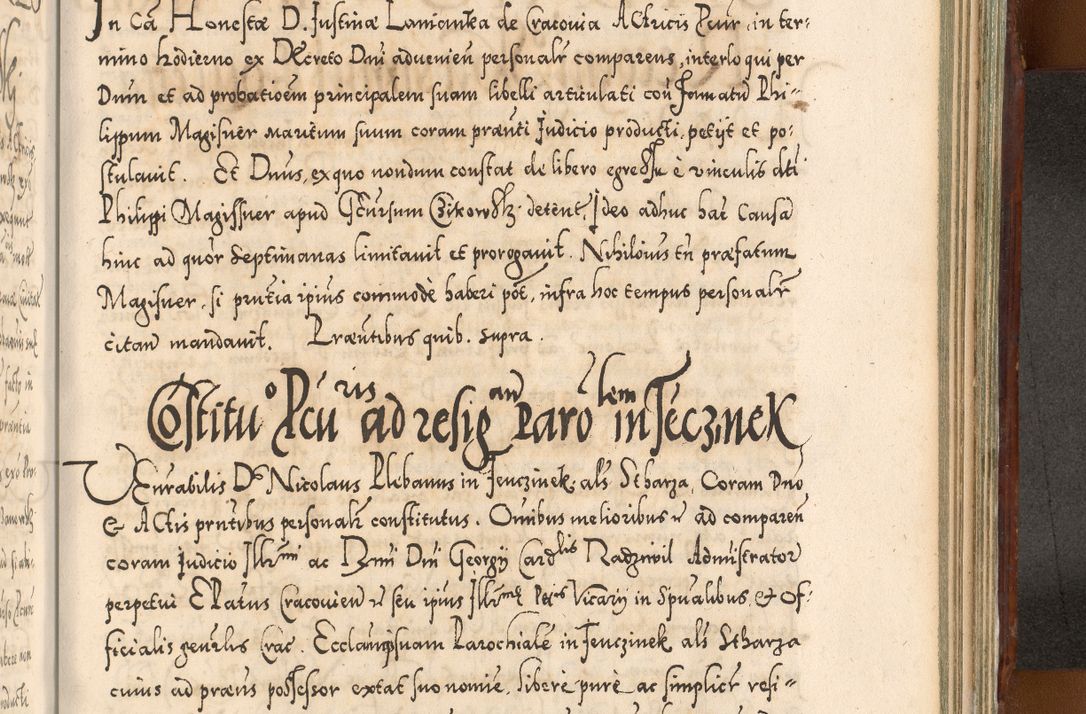 In Ca Honestæ D. Justinæ Lanionka de Cracovia ACtricis Pcur. in ter-
mino hodierno ex DEcreto Dni advenien personalr comparens, interloqui per
Dnum et ad probatioem principalem suam libelli articulati con Famatu Phi-
lippum Magisner maritum suum coram prænti Judicio producti, petijt et po-
stulavit. Et Dnus, ex quo nondum constat de libero egressu è vinculis dti
Philippi Magissner apud Czikowsk detent, Ideo adhuc hac Causa
hinc ad quor septimanas limitavit et prorogavit. Nihilovius tn præfatum
Magisner, si prntia ipius commodè haberi pot, infra hoc tempus personalr
citan mandavit. Præntibus quib. supra.
Costituo Pcuris ad resigan Parolem in Jeczinek
VEnrabilis Ds Nicolaus Plebanus in Jenczinek als Stharza, Coram Dno
& ACtis prntibus personalr constitutus. Omibus melioribus ad comparen
coram Judicio Illrmi ac Dni Georgij Cardlis Radziwil Administrator
perpetui EPatus Cracovien seu ipius Illrmæ Vicarij in Spualibus & Of-
ficialis genrlis Crac. Ecclam suam Parochialē in Jenczinek als Stharza
cuius ad præns possessor extat suo nomie, liberè purè ac simplicr resi-